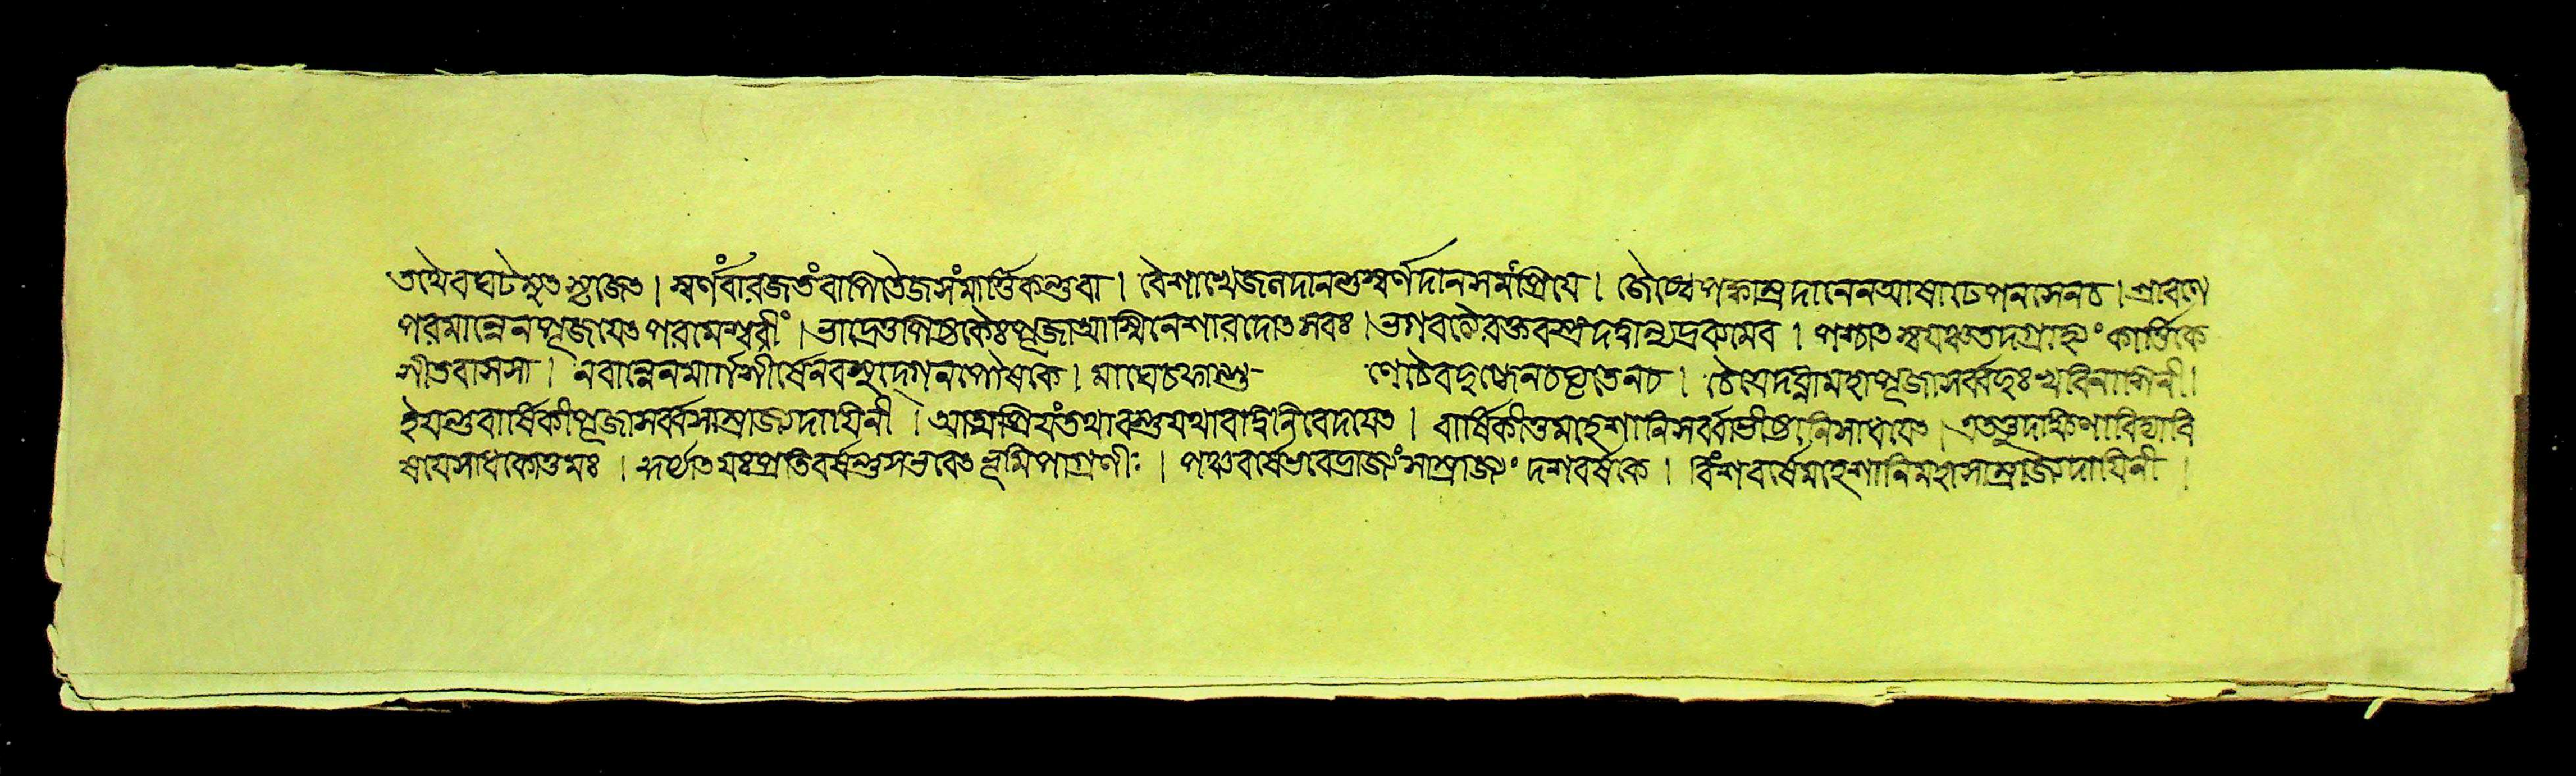 তথৈব ঘটেষ্মৎ স্রাজেৎ । স্বর্ণং বা রজতং বাপি তৈজসং মার্ত্তিকন্তু বা । বৈশাখে জলদানন্তু স্বর্ণদানসমং প্রিয়ে । জ্যৈষ্ঠে পক্কাম্রদানেন আষাঢ়ে পনসেন চ । শ্রাবণে
পরমান্নেন পূজয়েৎ পরমেশ্বরীং । ভাদ্রে তু পিষ্টকৈঃ পূজা আশ্বিনে শারদোৎসবঃ । ভগবত্যৈ রক্তবস্ত্রং দদ্যাৎ ভদ্রকমেব । পশ্চাৎ স্বয়ঞ্চ তদ্গ্রাহ্যং কার্ত্তিকে
পীতবাসসা । নবান্নেন মার্গশীর্ষে নবশ্যদেশন পৌষকে । মাঘে চ ফাল্গু- ণে চৈব দুগ্ধেন চ ঘৃতেন চ । চৈত্রে দদ্যান্মহাপূজা সর্ব্বদুঃখবিনাশিনী ।
ইয়ন্তু বার্ষিকী পূজা সর্ব্বসাম্রাজ্যদায়িনী । আত্মপ্রিয়ং তথা বস্তু যথাবদ্বিনিবেদয়েৎ । বার্ষিকী তু মহেশানি সর্ব্বাভীষ্টানি সাধয়েৎ । এতত্তু দক্ষিণা বিদ্যা বি
ষয়ে সাধকোত্তমঃ । কর্থাত যঃ প্রতিবর্ষন্তু স ভবেৎ ভূমিপাগ্রণীঃ । পঞ্চবর্ষে ভবেদ্রাজ্যং সাম্রাজ্যং দশবর্ষকে । বিংশবর্ষে মহেশানি মহাসাম্রাজ্যদায়িনী ।